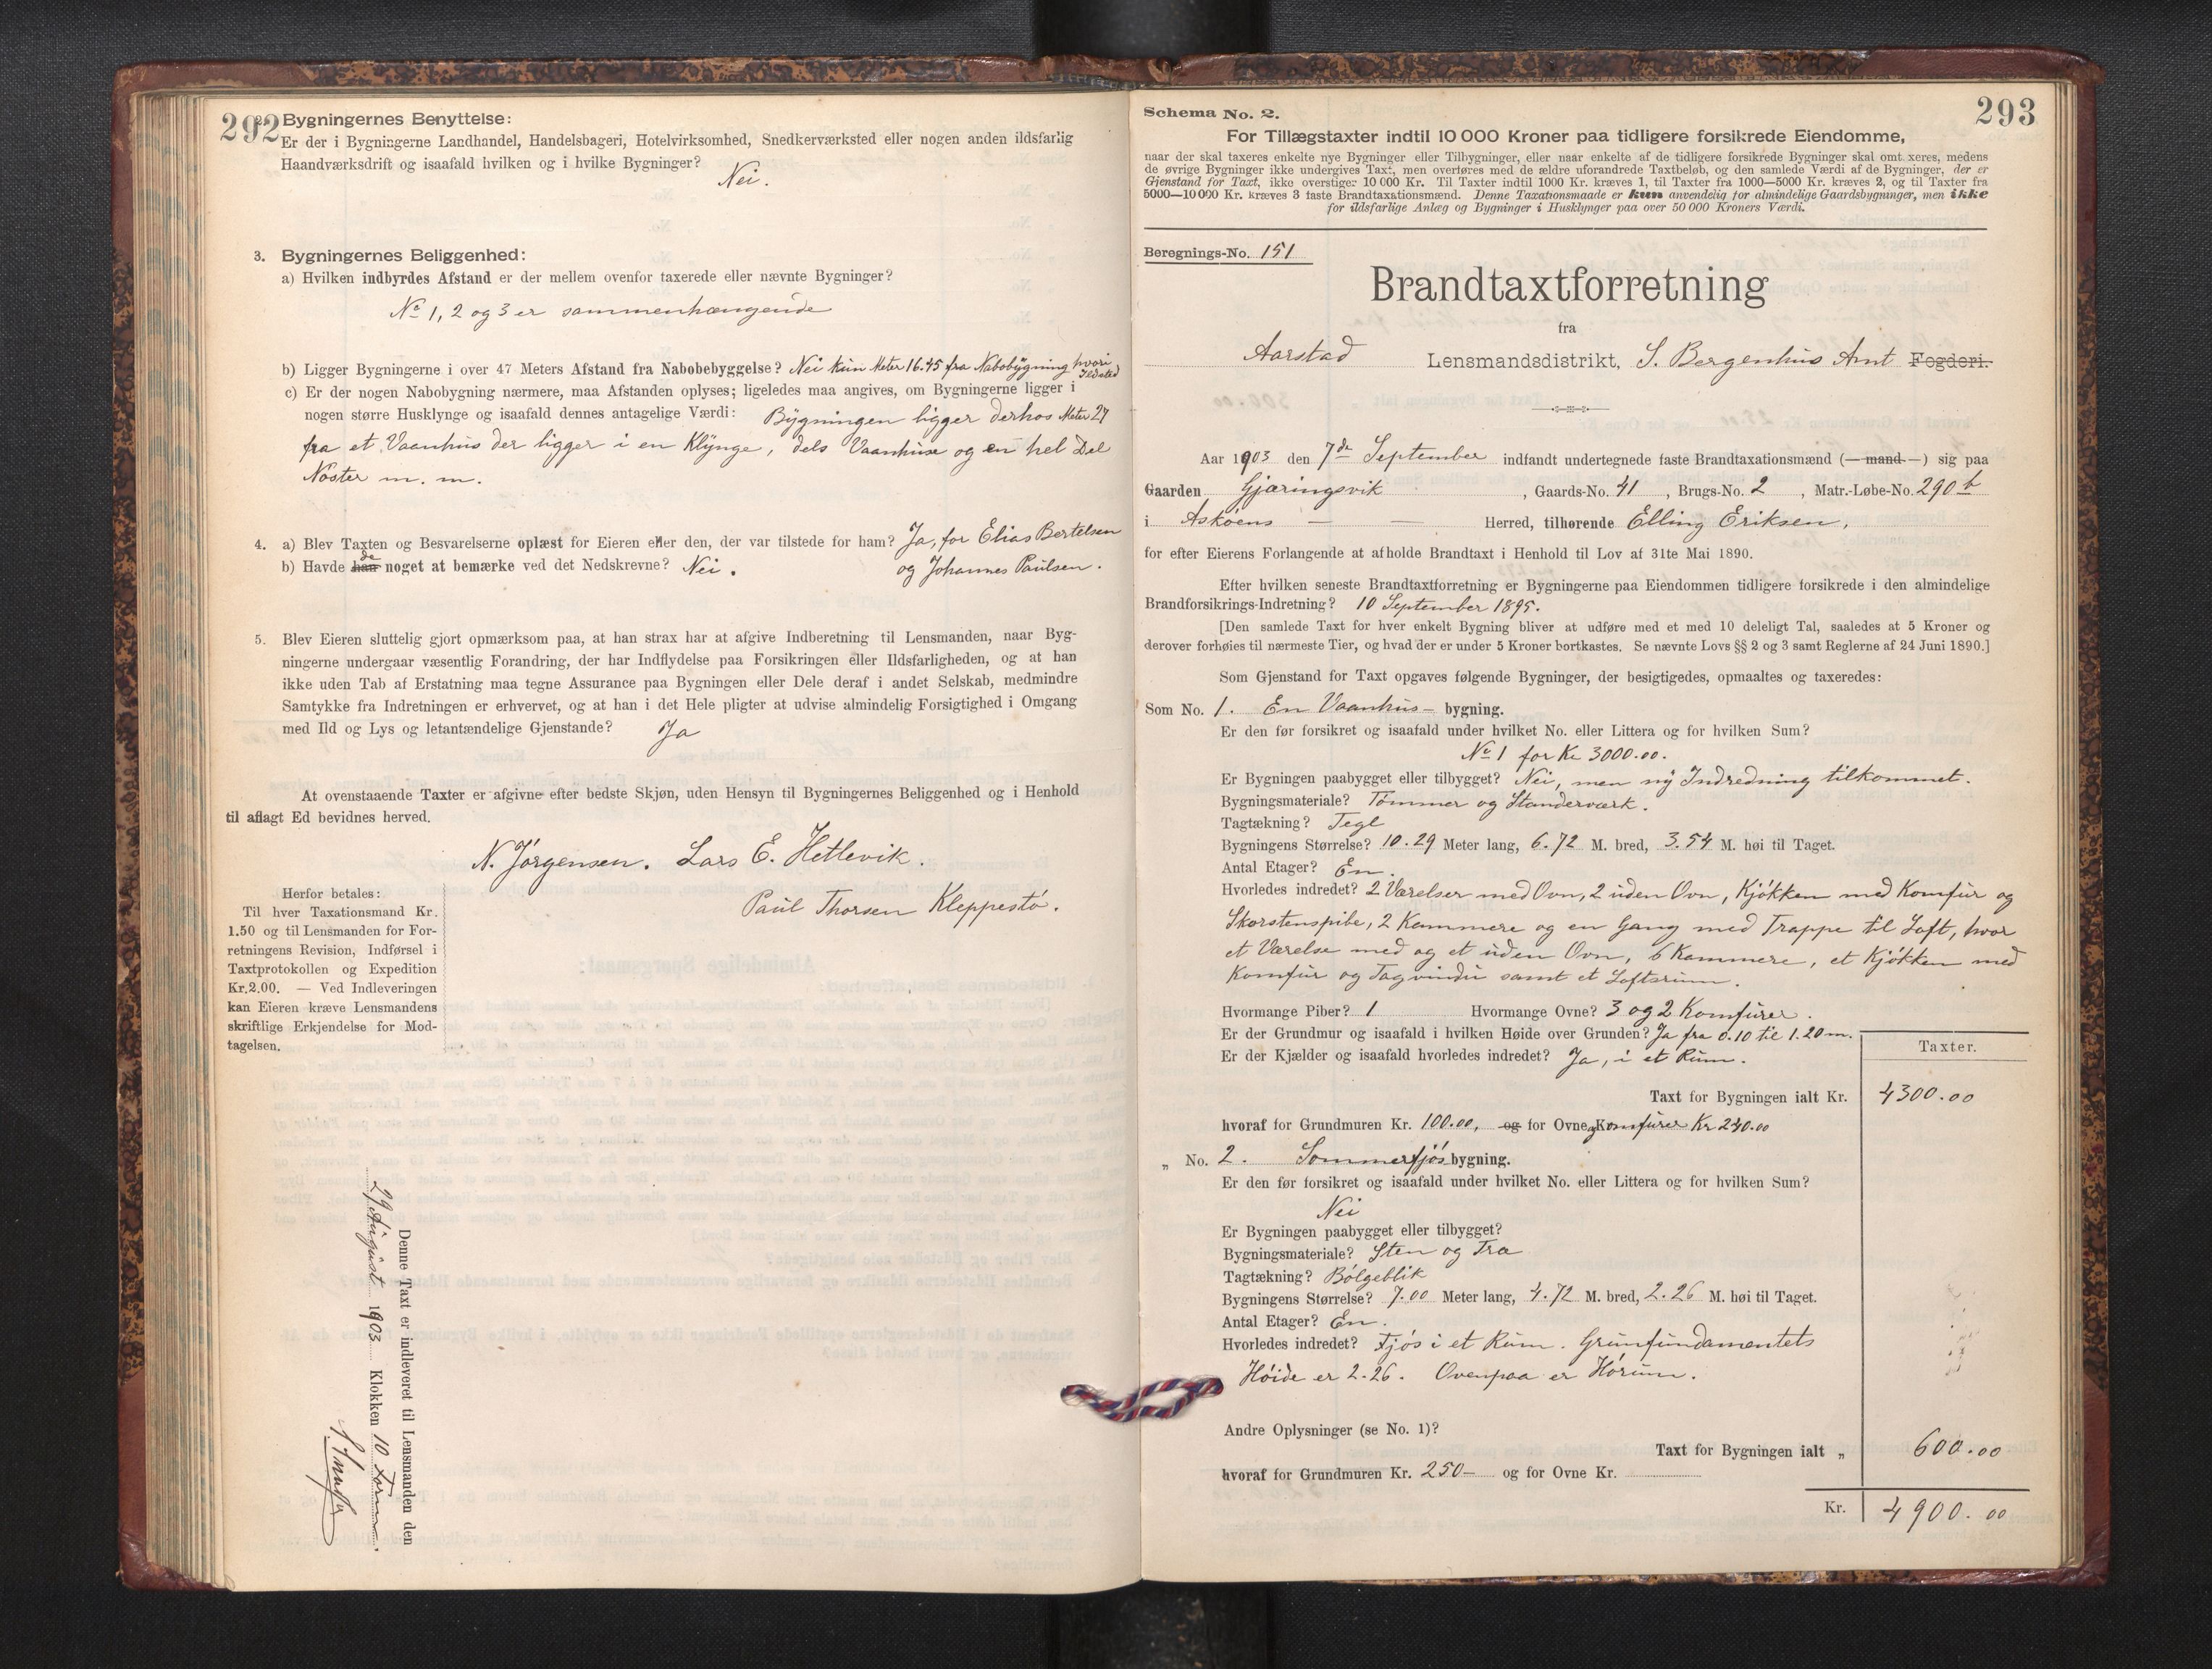 292
Bygningernes Benyttelse:
Er der i Bygningerne Landhandel, Handelsbageri, Hotelvirksomhed, Snedkerværksted eller nogen anden ildsfarlig
Haandværksdrift og isaafald hvilken og i hvilke Bygninger?
Nei.
3. Bygningernes Beliggenhed:
a) Hvilken indbyrdes Afstand er der mellem ovenfor taxerede eller nævnte Bygninger?
No 1, 2 og 3 er sammenhængende
b) Ligger Bygningerne i over 47 Meters Afstand fra Nabobebyggelse? Nei kun Meter 16.45 fra Nabobygning hvori Ildsted
c) Er der nogen Nabobygning nærmere, maa Afstanden oplyses; ligeledes maa angives, om Bygningerne ligger i
nogen større Husklynge og isaafald dennes antagelige Værdi: Bygningen ligger derhos Meter 27
fra et Vaanhus der ligger i en Klynge, dels Vaanhuse og en hel Del
Nøster m. m.
4. a) Blev Taxten og Besvarelserne oplæst for Eieren eller den, der var tilstede for ham? Ja, for Elias Bertelsen
b) Havde han de noget at bemærke ved det Nedskrevne? Nei. og Johannes Paulsen.
5. Blev Eieren sluttelig gjort opmærksom paa, at han strax har at afgive Indberetning til Lensmanden, naar Byg-
ningerne undergaar væsentlig Forandring, der har Indflydelse paa Forsikringen eller Ildsfarligheden, og at han
ikke uden Tab af Erstatning maa tegne Assurance paa Bygningen eller Dele deraf i andet Selskab, medmindre
Samtykke fra Indretningen er erhvervet, og at han i det Hele pligter at udvise almindelig Forsigtighed i Omgang
med Ild og Lys og letantændelige Gjenstande? Ja
At ovenstaaende Taxter er afgivne efter bedste Skjøn, uden Hensyn til Bygningernes Beliggenhed og i Henhold
til aflagt Ed bevidnes herved.
N. Jørgensen. Lars E. Hetlevik.
Paul Thorsen Kleppestø.
Herfor betales:
Til hver Taxationsmand Kr.
1.50 og til Lensmanden for For-
retningens Revision, Indførsel i
Taxtprotokollen og Expedition
Kr.2.00. — Ved Indleveringen
kan Eieren kræve Lensmandens
skriftlige Erkjendelse for Mod-
tagelsen.
Denne Taxt er indleveret til Lensmanden den
29 August 1903 Klokken 10 Form.
Schema No. 2.
293
For Tillægstaxter indtil 10 000 Kroner paa tidligere forsikrede Eiendomme,
naar der skal taxeres enkelte nye Bygninger eller Tilbygninger, eller naar enkelte af de tidligere forsikrede Bygninger skal omt xeres, medens
de øvrige Bygninger ikke undergives Taxt, men overføres med de ældre uforandrede Taxtbeløb, og den samlede Værdi af de Bygninger, der er
Gjenstand for Taxt, ikke overstiger 10 000 Kr. Til Taxter indtil 1000 Kr. kræves 1, til Taxter fra 1000—5000 Kr. kræves 2, og til Taxter fra
5000—10 000 Kr. kræves 3 faste Brandtaxationsmænd. Denne Taxationsmaade er kun anvendelig for almindelige Gaardsbygninger, men ikke
for ildsfarlige Anlæg og Bygninger i Husklynger paa over 50 000 Kroners Værdi.
Beregnings-No. 151
Brandtaxtforretning
fra
Aarstad Lensmandsdistrikt, S. Bergenhus Amt Fogderi.
Aar 1903 den 7de September indfandt undertegnede faste Brandtaxationsmænd (—mand—) sig paa
Gaarden Gjæringsvik, Gaards-No. 41, Brugs-No. 2, Matr.-Løbe-No. 290 b
i Askøens — — Herred, tilhørende Elling Eriksen,
for efter Eierens Forlangende at afholde Brandtaxt i Henhold til Lov af 31te Mai 1890.
Efter hvilken seneste Brandtaxtforretning er Bygningerne paa Eiendommen tidligere forsikrede i den almindelige
Brandforsikrings-Indretning? 10 September 1895.
[Den samlede Taxt for hver enkelt Bygning bliver at udføre med et med 10 deleligt Tal, saaledes at 5 Kroner og
derover forhøies til nærmeste Tier, og hvad der er under 5 Kroner bortkastes. Se nævnte Lovs §§ 2 og 3 samt Reglerne af 24 Juni 1890.]
Som Gjenstand for Taxt opgaves følgende Bygninger, der besigtigedes, opmaaltes og taxeredes:
Som No. 1. En Vaanhus- bygning.
Er den før forsikret og isaafald under hvilket No. eller Littera og for hvilken Sum?
No 1 for Kr 3000.00.
Er Bygningen paabygget eller tilbygget? Nei, men ny Indredning tilkommet.
Bygningsmateriale? Tømmer og Standerværk.
Tagtækning? Tegl
Bygningens Størrelse? 10.29 Meter lang, 6.72 M. bred, 3.54 M. høi til Taget.
Antal Etager? En.
Hvorledes indredet? 2 Værelser med Ovn, 2 uden Ovn, Kjøkken med Komfur og
Skorstenspibe, 2 Kammere og en Gang med Trappe til Loft, hvor
et Værelse med og et uden Ovn, 6 Kammere, et Kjøkken med
Komfur og Tagvindu samt et Loftsrum.
Hvormange Piber? 1 Hvormange Ovne? 3 og 2 Komfurer.
Er der Grundmur og isaafald i hvilken Høide over Grunden? Ja fra 0.10 til 1.20 m.
Er der Kjælder og isaafald hvorledes indredet? Ja, i et Rum.
Taxter.
Taxt for Bygningen ialt Kr. 4300.00
hvoraf for Grundmuren Kr. 100.00, og for Ovne og Komfurer Kr 240.00
„ No. 2. Sommerfjøs bygning.
Er den før forsikret og isaafald under hvilket No. eller Littera og for hvilken Sum?
Nei
Er Bygningen paabygget eller tilbygget?
Bygningsmateriale? Sten og Træ
Tagtækning? Bølgeblik
Bygningens Størrelse? 7.00 Meter lang, 4.72 M. bred, 2.26 M. høi til Taget.
Antal Etager? En.
Hvorledes indredet? Fjøs i et Rum. Grunfundamentets
Høide er 2.26. Ovenpaa er Hørum.
Andre Oplysninger (se No. 1)?
Taxt for Bygningen ialt „ 600.00
hvoraf for Grundmuren Kr. 250— og for Ovne Kr.
Kr. 4900.00